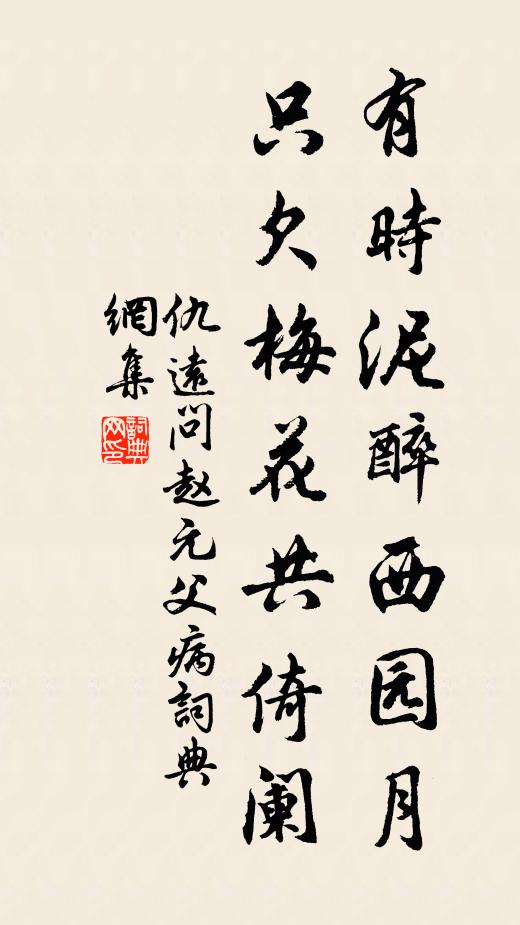 有時泥醉西园月
只欠梅花共倚阑
仇遠問赵元父病詞典
網集
詞典网印